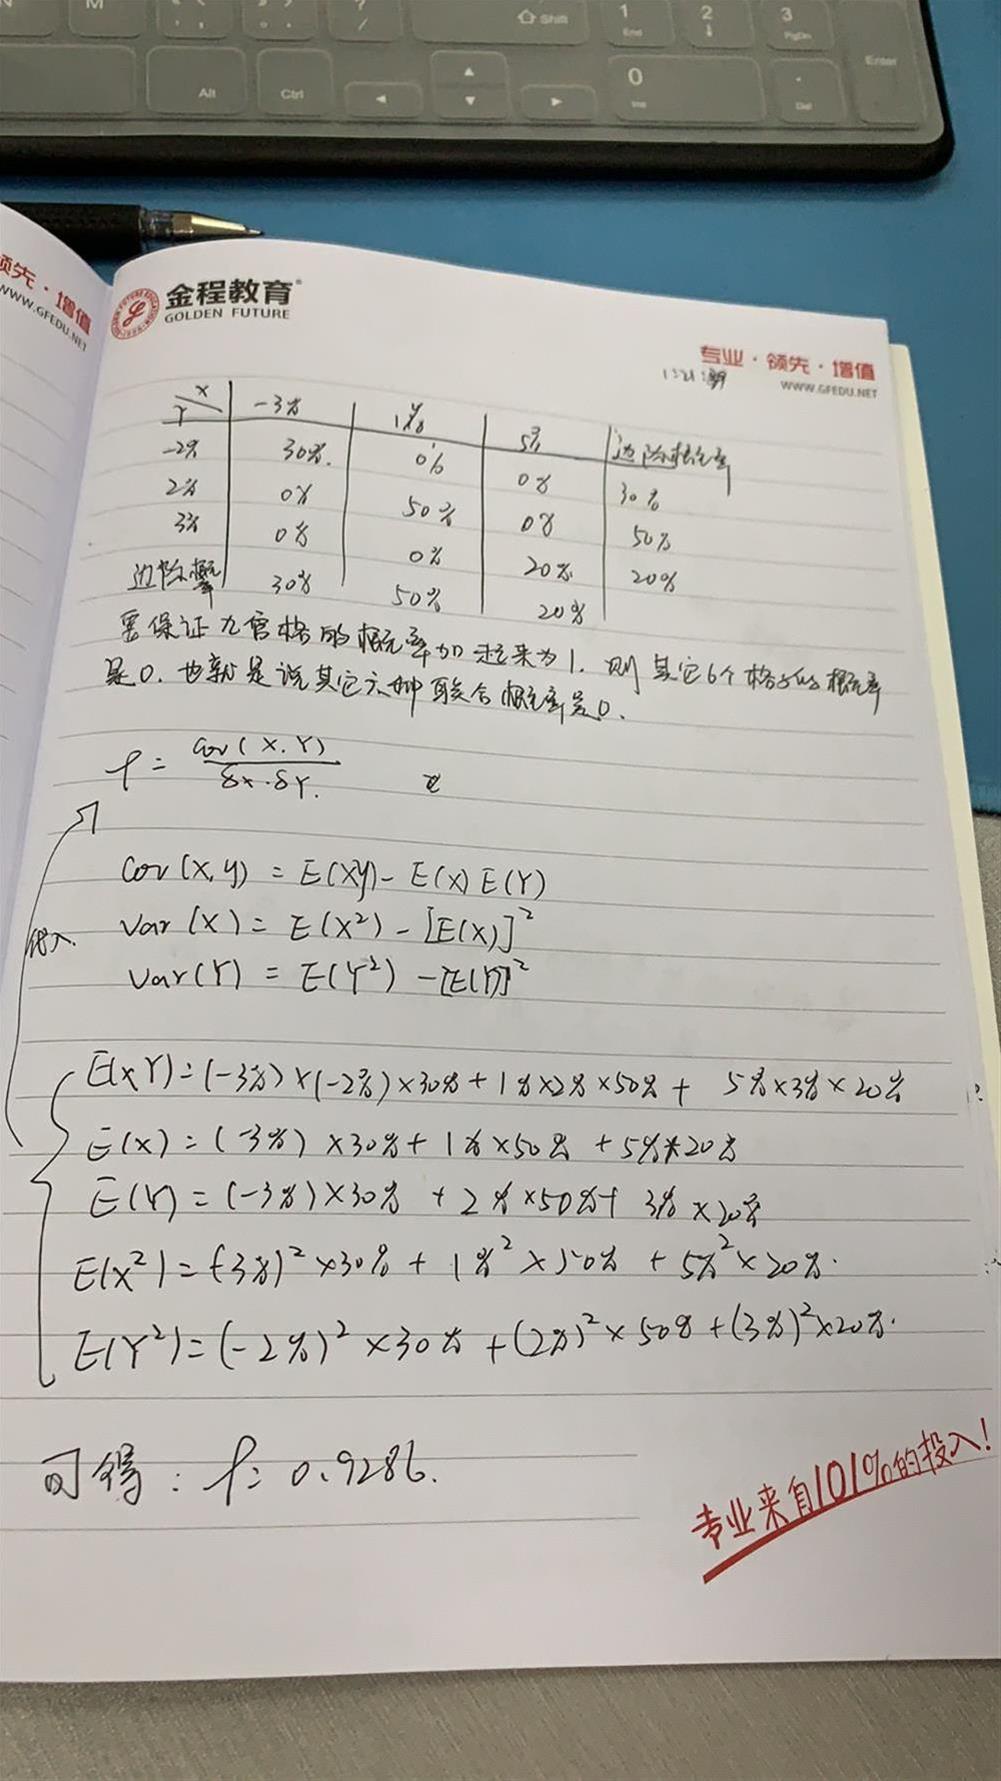 N
M
?
/
Shift
1
End
2
3
PgDn
Enter
Alt
Ctrl
0
Ins
.
Del
领先·增值
WWW.GFEDU.NET
金程教育
GOLDEN FUTURE
专业·领先·增值
WWW.GFEDU.NET
X -3% 1% 5% 边际概率
Y
-2% 30% 0% 0% 30%
2% 0% 50% 0% 50%
3% 0% 0% 20% 20%
边际概率 30% 50% 20%
要保证九宫格的概率加起来为1. 则其它6个格子的概率
是0. 也就是说其它六种联合概率是0.
ρ = Cov(X.Y) / δx·δY.
Cov(X,y) = E(XY) - E(x) E(Y)
代入.
Var(X) = E(X²) - [E(X)]²
Var(Y) = E(Y²) - [E(Y)]²
E(XY) = (-3%) × (-2%) × 30% + 1% × 2% × 50% + 5% × 3% × 20%
E(X) = (-3%) × 30% + 1% × 50% + 5% * 20%
E(Y) = (-3%) × 30% + 2% × 50% + 3% × 20%
E(X²) = (-3%)² × 30% + 1%² × 50% + 5%² × 20%.
E(Y²) = (-2%)² × 30% + (2%)² × 50% + (3%)² × 20%.
可得: ρ = 0.9286.
专业来自101%的投入!